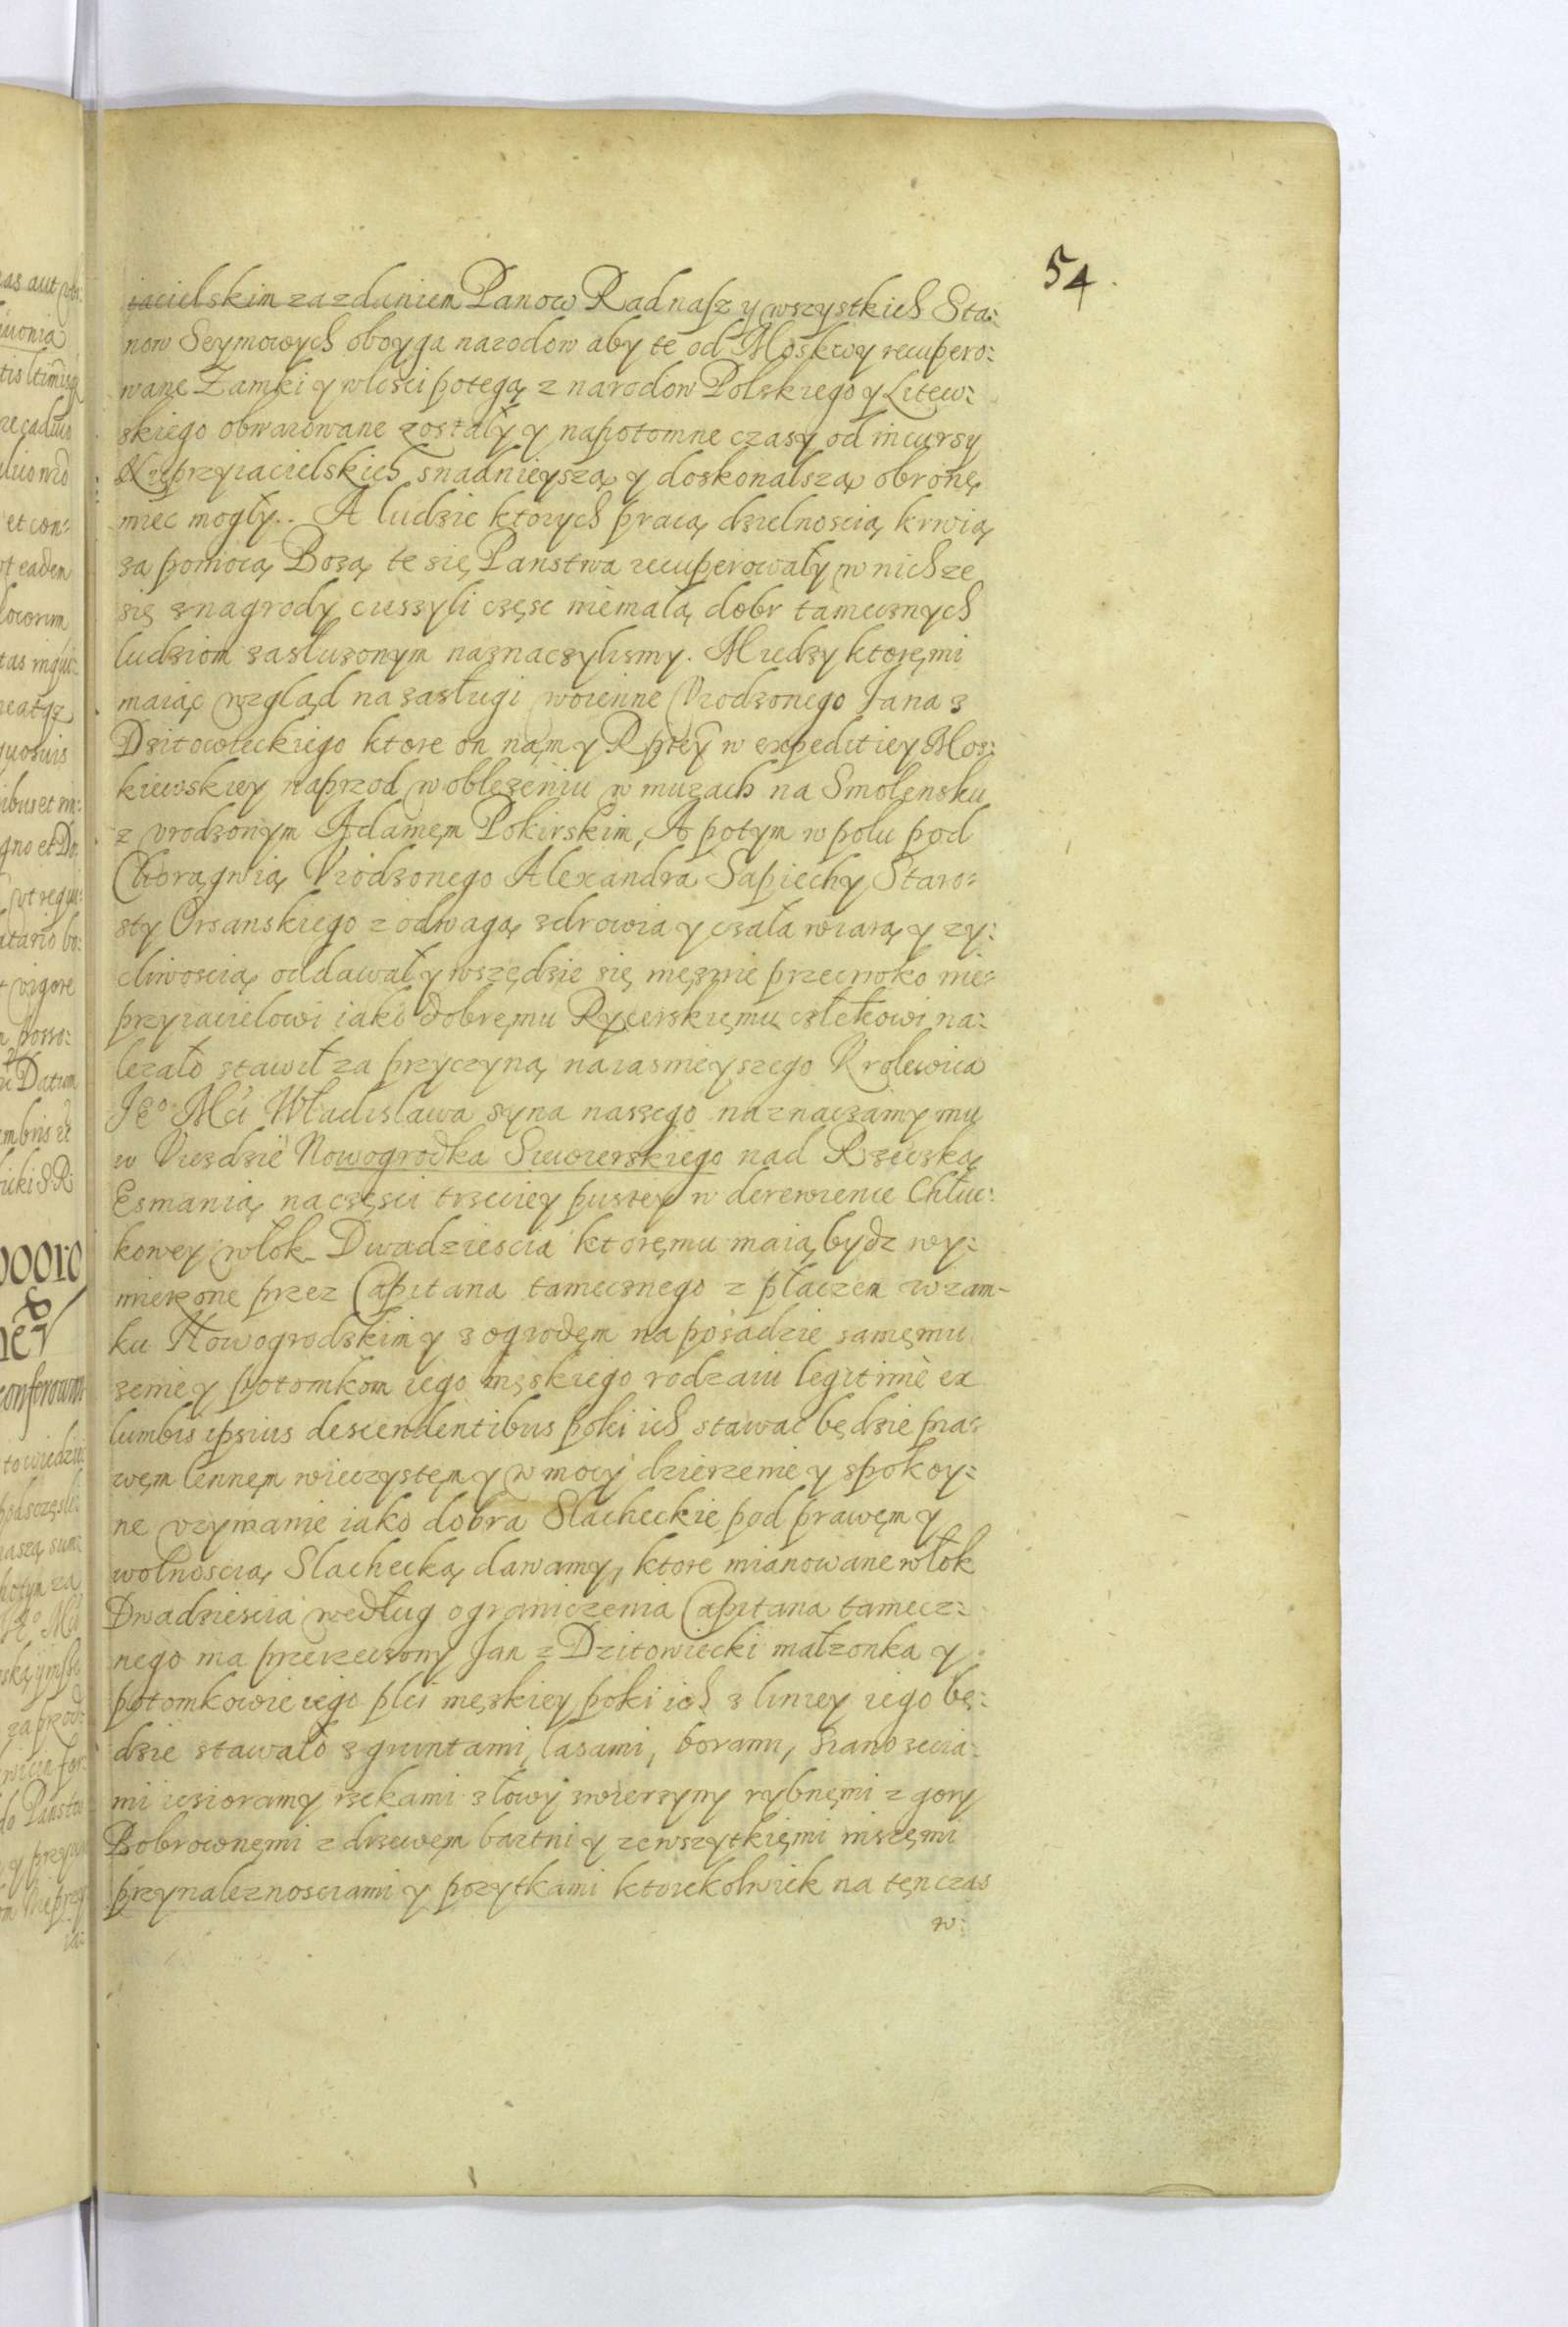 54.
iacielskim za zdaniem Panow Rad nasz y wszystkich Sta:
now Seymowych oboyga narodow aby te od Moskwy recupero:
wane Zamki y wlosci potęgą z narodow Polskiego y Litew:
skiego obwarowane zostały y napotomne czasy od incursy
Nieprzyiacielskich snadnieyszą y doskonalszą obronę
miec mogły. A ludzie ktorych pracą dzielnoscią krwią
za pomocą Bozą te się Panstwa recuperowały w nich ze
się z nagrody cieszyli częsc niemałą dobr tamecznych
ludziom zasłuzonym naznaczylismy. Miedzy ktoręmi
maiąc wzgląd na zasługi woienne Vrodzonego Jana z
Dzitowieckiego ktore on nam y Rptey w expeditiey Mos:
kiewskiey naprzod w oblęzeniu w murach na Smolensku
z vrodzonym Adamęm Pokirskim, A potym w polu pod
Chorągwią Vrodzonego Alexandra Sapiechy Staro:
sty Orsanskiego z odwagą zdrowia y czała wiarą y zy:
cliwoscią oddawał y wszędzie się męznie przeciwko nie:
przyiacielowi iako dobręmu Rycerskięmu człekowi na:
lezało stawił za przyczyną naiasnieyszego Krolewica
Jeo Mci Władislawa syna naszego naznaczamy mu
w Viezdzie Nowogrodka Siewierskiego nad Rzeczką
Esmanią na częsci trzeciey pustey w derewience Chłuc:
kowey włok Dwadziescia ktoręmu maią bydz wy:
mierzone przez Capitana tamecznego z płaczem w zam-
ku Nowogrodzkim y z ogrodęm na posadzie samęmu
zenie y potomkom iego męskiego rodzaiu legitimè ex
lumbis ipsius descendentibus poki ich stawac będzie pra:
węm lennęm wieczystęm y w mocy dzierzenie y spokoy:
ne vzymanie iako dobra Slacheckie pod prawęm y
wolnoscią Slachecką dawamy, ktore mianowane włok
Dwadziescia według ograniczenia Capitana tamecz:
nego ma przerzeczony Jan z Dzitowiecki małzonka y
potomkowie iego płci męskiey poki ich z liniey iego bę:
dzie stawało z gruntami, lasami, borami, sianozecia:
mi iezioramy rzekami z łowy zwierzyny rybnęmi z gory
Bobrownęmi z drzewęm bartni y ze wszytkięmi inszęmi
przynaleznosciami y pozytkami ktorekolwiek na tęn czas
w: